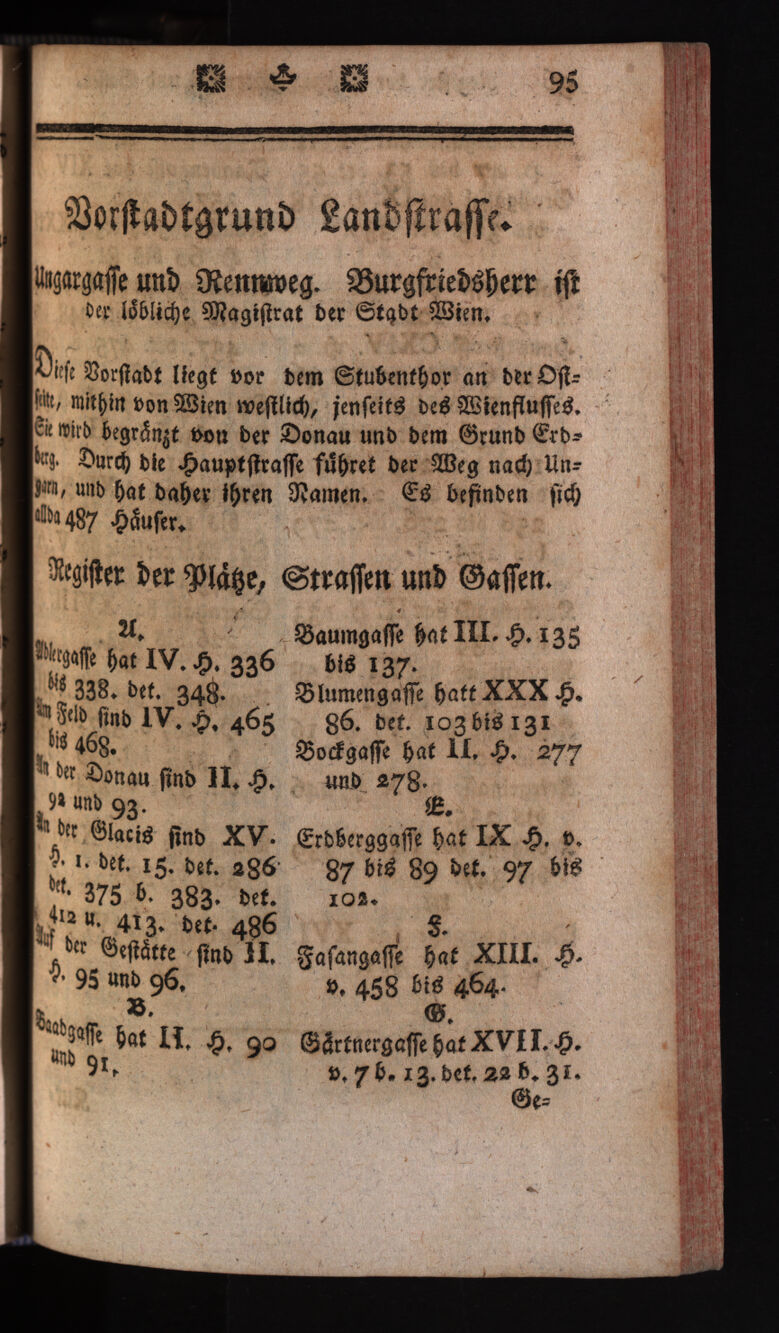 95
Vorstadtgrund Landstrasse.
Ungargasse und Rennweg. Burgfriedsherr ist
der löbliche Magistrat der Stadt Wien.
Diese Vorstadt liegt vor dem Stubenthor an der Ost-
seite, mithin von Wien westlich, jenseits des Wienflusses.
Sie wird begränzt von der Donau und dem Grund Erd-
berg. Durch die Hauptstrasse führet der Weg nach Un-
garn, und hat daher ihren Namen. Es befinden sich
allda 487 Häuser.
Register der Plätze, Strassen und Gassen.
A.
Adlergasse hat IV. H. 336
bis 338. det. 348.
Im Feld sind IV. H. 465
bis 468.
An der Donau sind II. H.
92 und 93.
An der Glacis sind XV.
H. 1. det. 15. det. 286
det. 375 b. 383. det.
412 u. 413. det. 486
Auf der Gestätte sind II.
H. 95 und 96.
B.
Baadgasse hat II. H. 90
und 91.
Baumgasse hat III. H. 135
bis 137.
Blumengasse hatt XXX H.
86. det. 103 bis 131
Bockgasse hat II. H. 277
und 278.
E.
Erdberggasse hat IX H. v.
87 bis 89 det. 97 bis
102.
F.
Fasangasse hat XIII. H.
v. 458 bis 464.
G.
Gärtnergasse hat XVII. H.
v. 7 b. 13. det. 22 b. 31.
Ge-